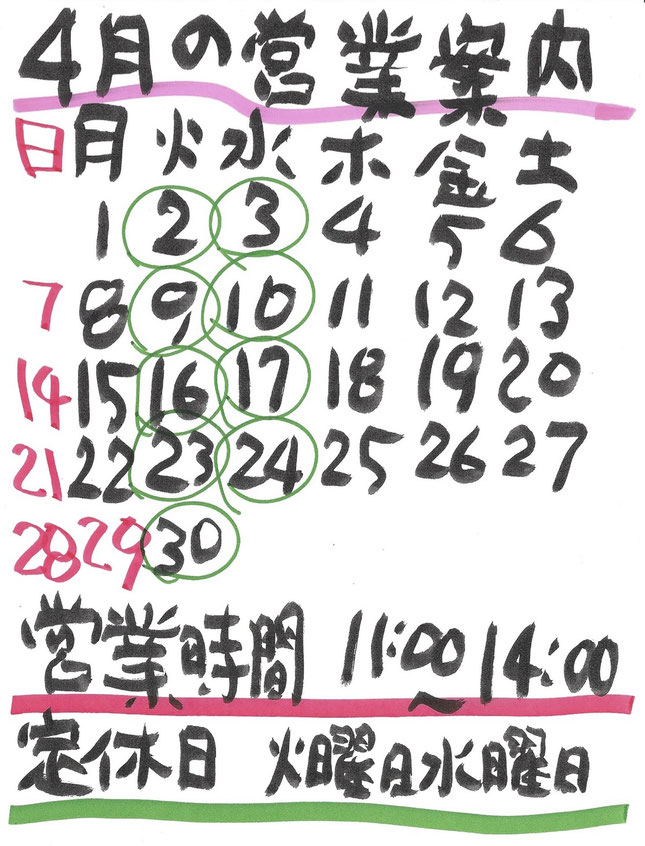 4月の営業案内
日 月 火 水 木 金 土
1 2 3 4 5 6
7 8 9 10 11 12 13
14 15 16 17 18 19 20
21 22 23 24 25 26 27
28 29 30
営業時間 11:00~14:00
定休日 火曜日水曜日